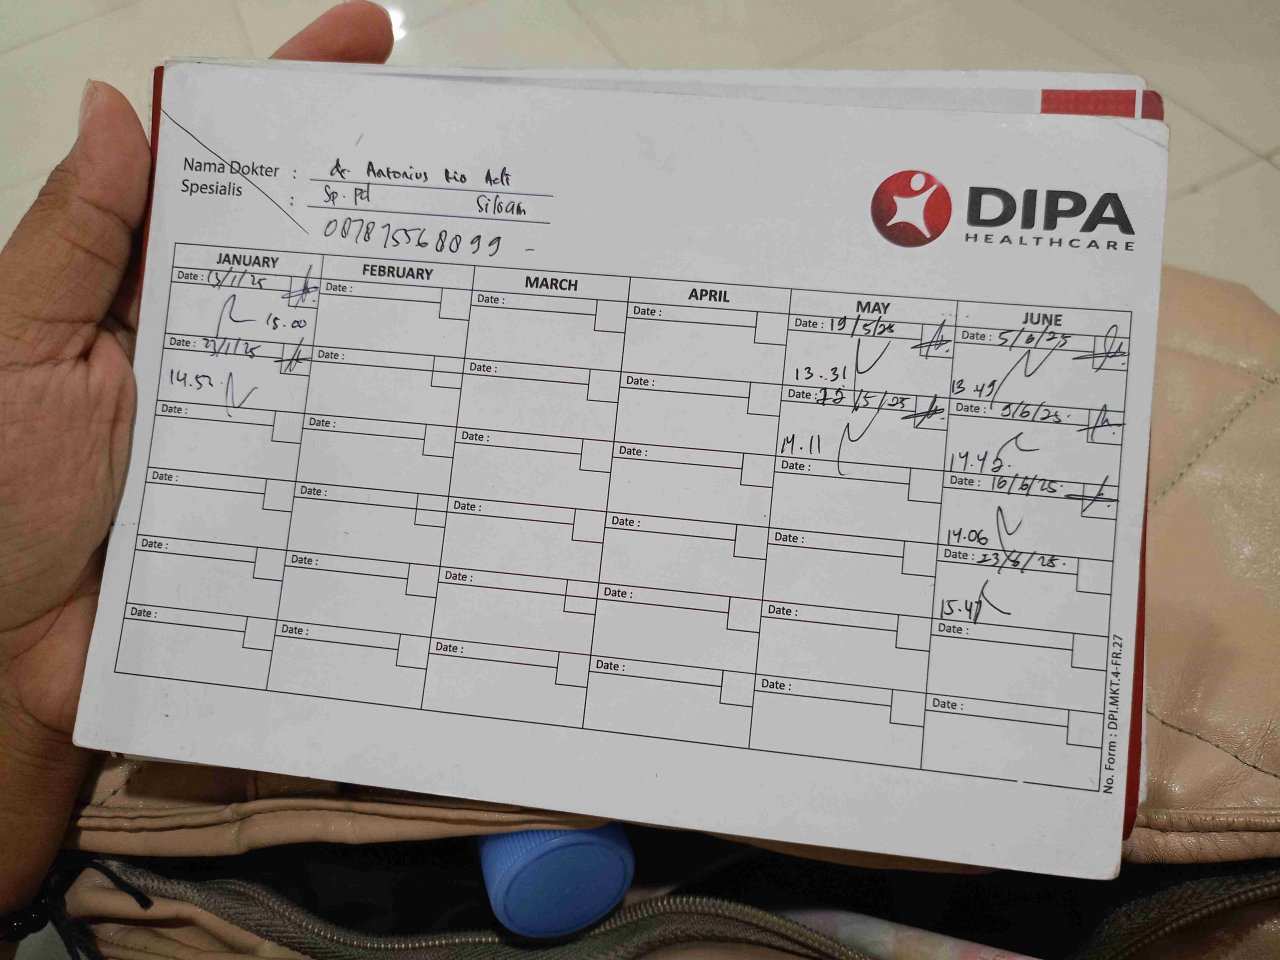 Nama Dokter : dr Antonius Rio Adi
Spesialis : Sp. Pd Siloam
087875568099 -
DIPA
HEALTHCARE
JANUARY FEBRUARY MARCH APRIL MAY JUNE
Date : 13/1/25 Date : Date : Date : Date : 19/5/25 Date : 5/6/25
15.00 13.31 13.49
Date : 23/1/25 Date : Date : Date : Date : 22/5/25 Date : 9/6/25.
14.52. 14.11 14.42.
Date : Date : Date : Date : Date : Date : 16/6/25.
14.06
Date : Date : Date : Date : Date : Date : 23/6/25.
15.47
Date : Date : Date : Date : Date : Date :
Date : Date : Date : Date : Date : Date :
No. Form : DPI.MKT.4-FR.27